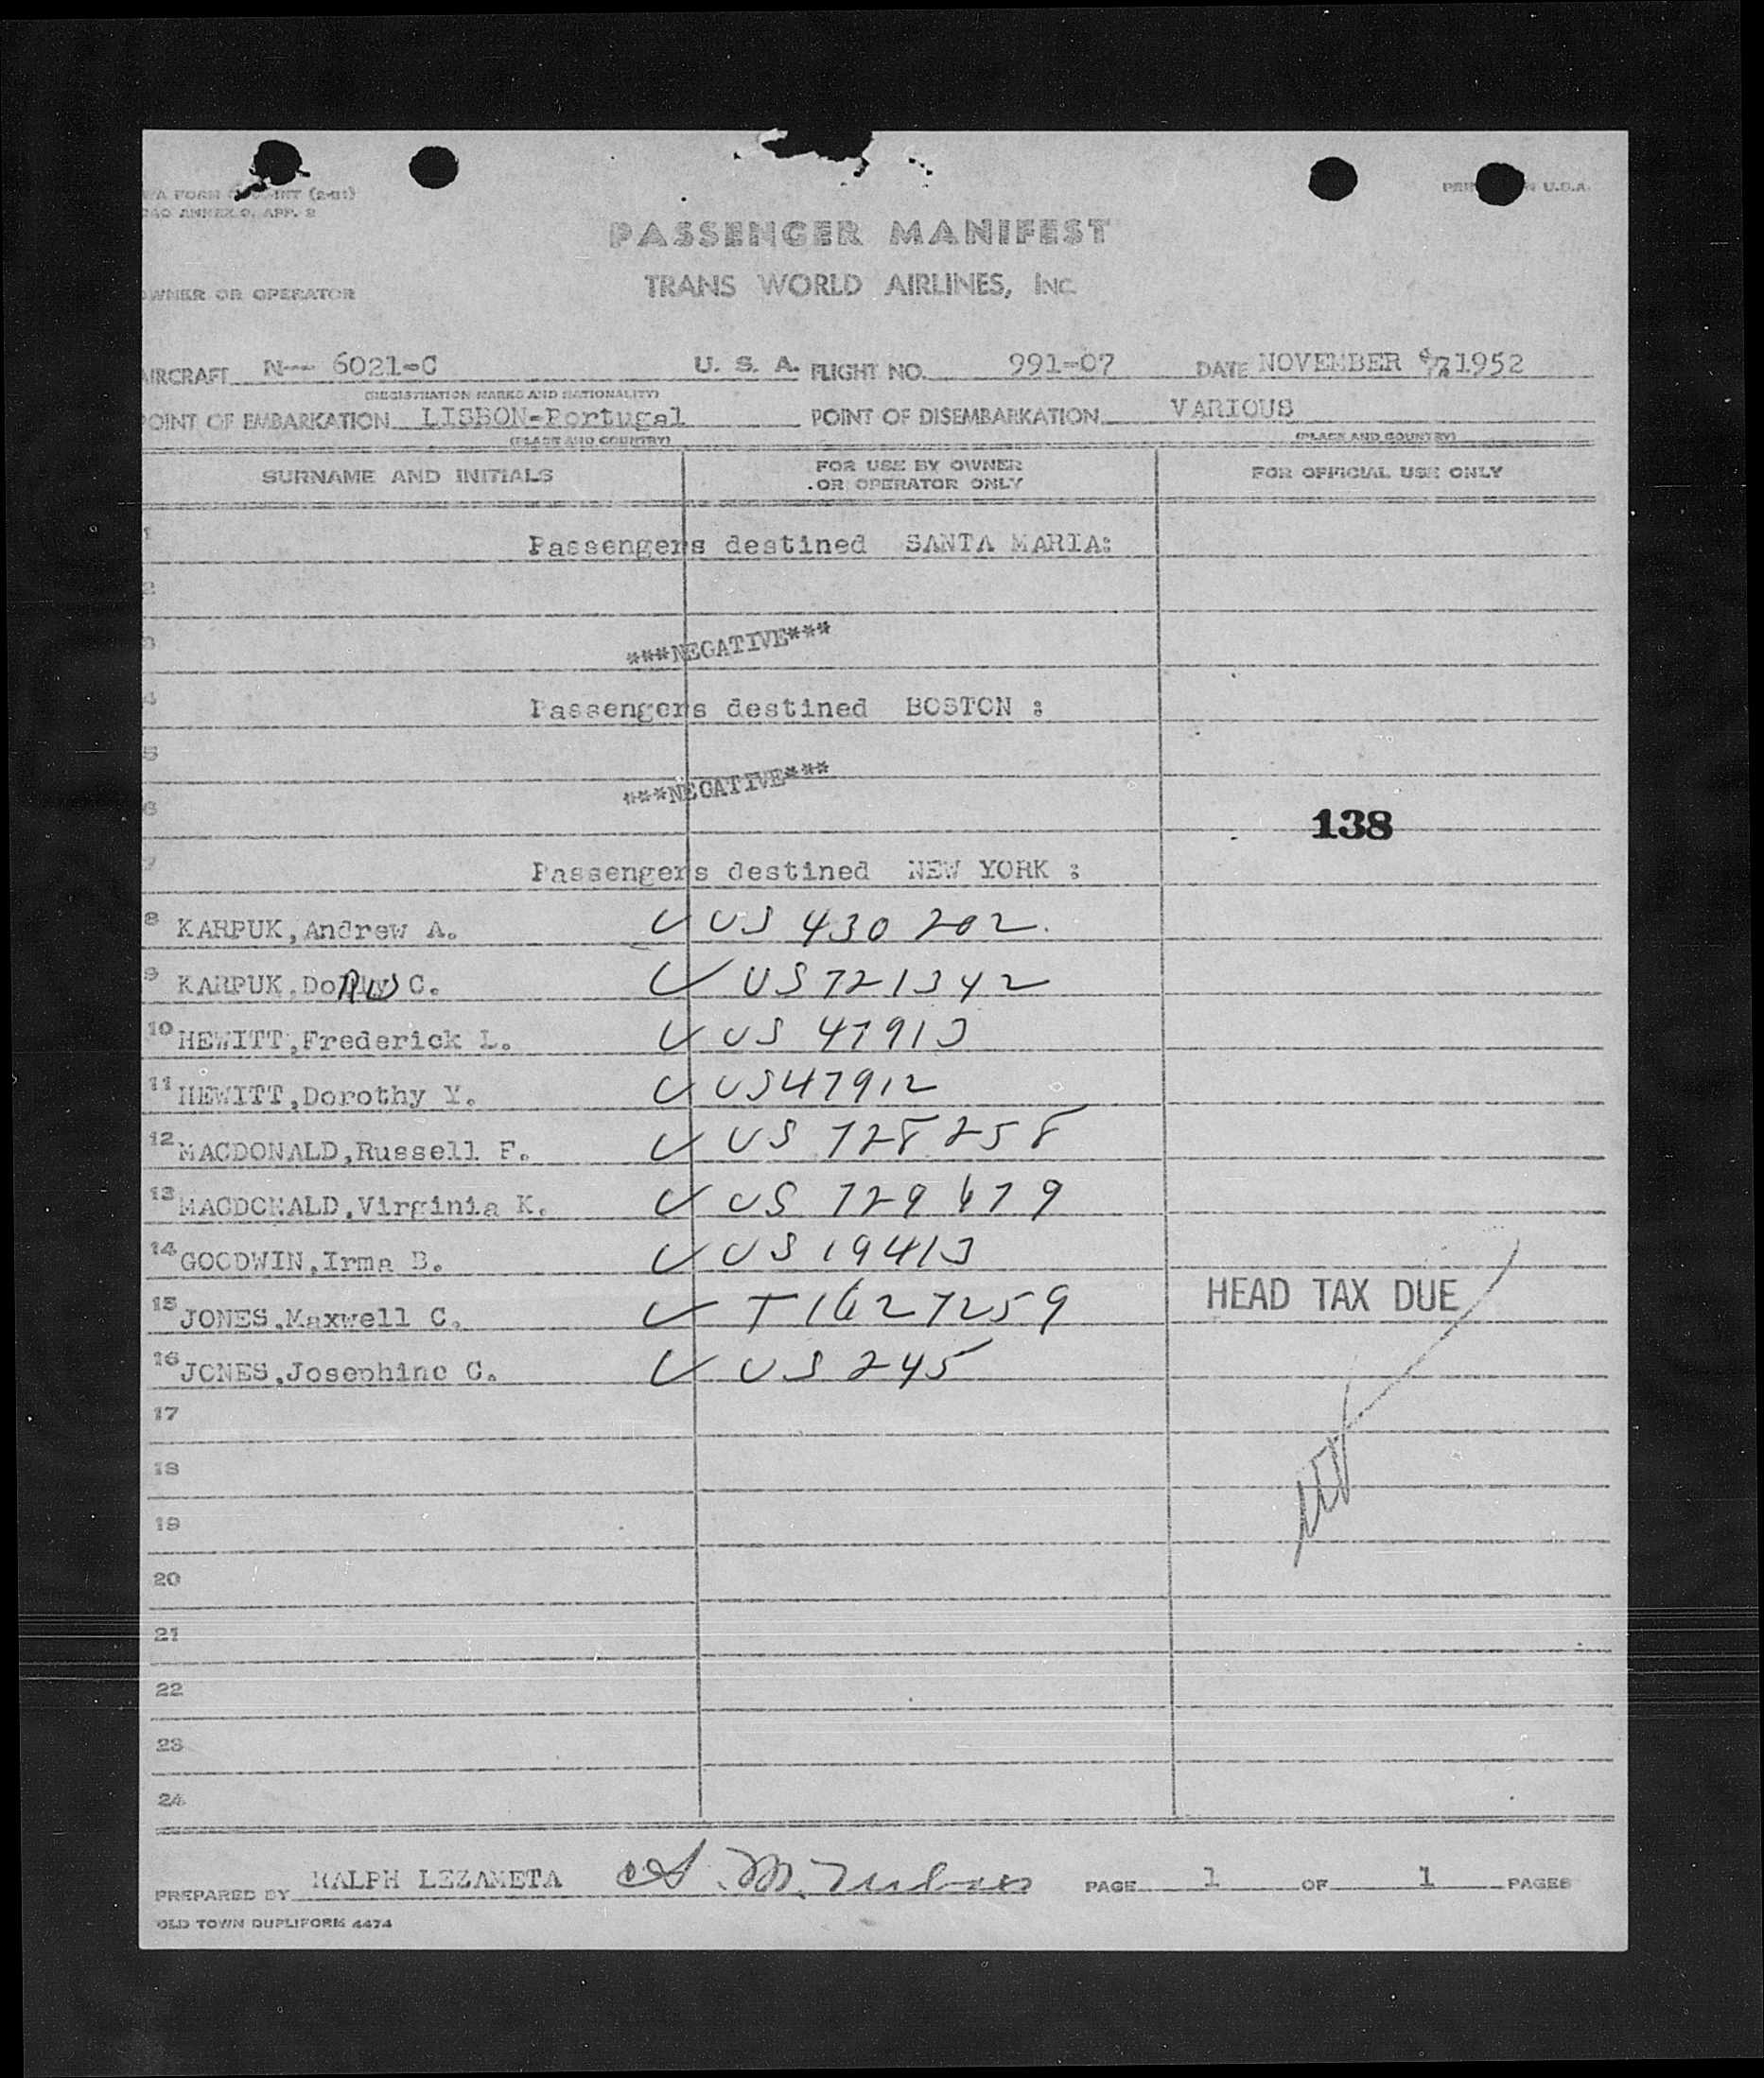 PASSENGER MANIFEST
TRANS WORLD AIRLINES, INC.
OWNER OR OPERATOR
AIRCRAFT N-- 6021-C U. S. A. FLIGHT NO. 991-07 DATE NOVEMBER 1952
(REGISTRATION MARKS AND NATIONALITY)
POINT OF EMBARKATION LISBON-Portugal POINT OF DISEMBARKATION VARIOUS
(PLACE AND COUNTRY) (PLACE AND COUNTRY)
SURNAME AND INITIALS FOR USE BY OWNER OR OPERATOR ONLY FOR OFFICIAL USE ONLY
1 Passengers destined SANTA MARIA:
2
3 ***NEGATIVE***
4 Passengers destined BOSTON :
5
6 ***NEGATIVE***
138
7 Passengers destined NEW YORK :
8 KARPUK,Andrew A. US 430202
9 KARPUK, C. US 721342
10 HEWITT,Frederick L. US 47913
11 HEWITT,Dorothy Y. US47912
12 MACDONALD,Russell F. US 728258
13 MACDONALD,Virginia K. US 729679
14 GOODWIN,Irma B. US 19413
15 JONES,Maxwell C. T1627259 HEAD TAX DUE
16 JONES,Josephine C. US 245
17
18
19
20
21
22
23
24
PREPARED BY RALPH LEZAMETA PAGE 1 OF 1 PAGES
OLD TOWN DUPLIFORM 4474